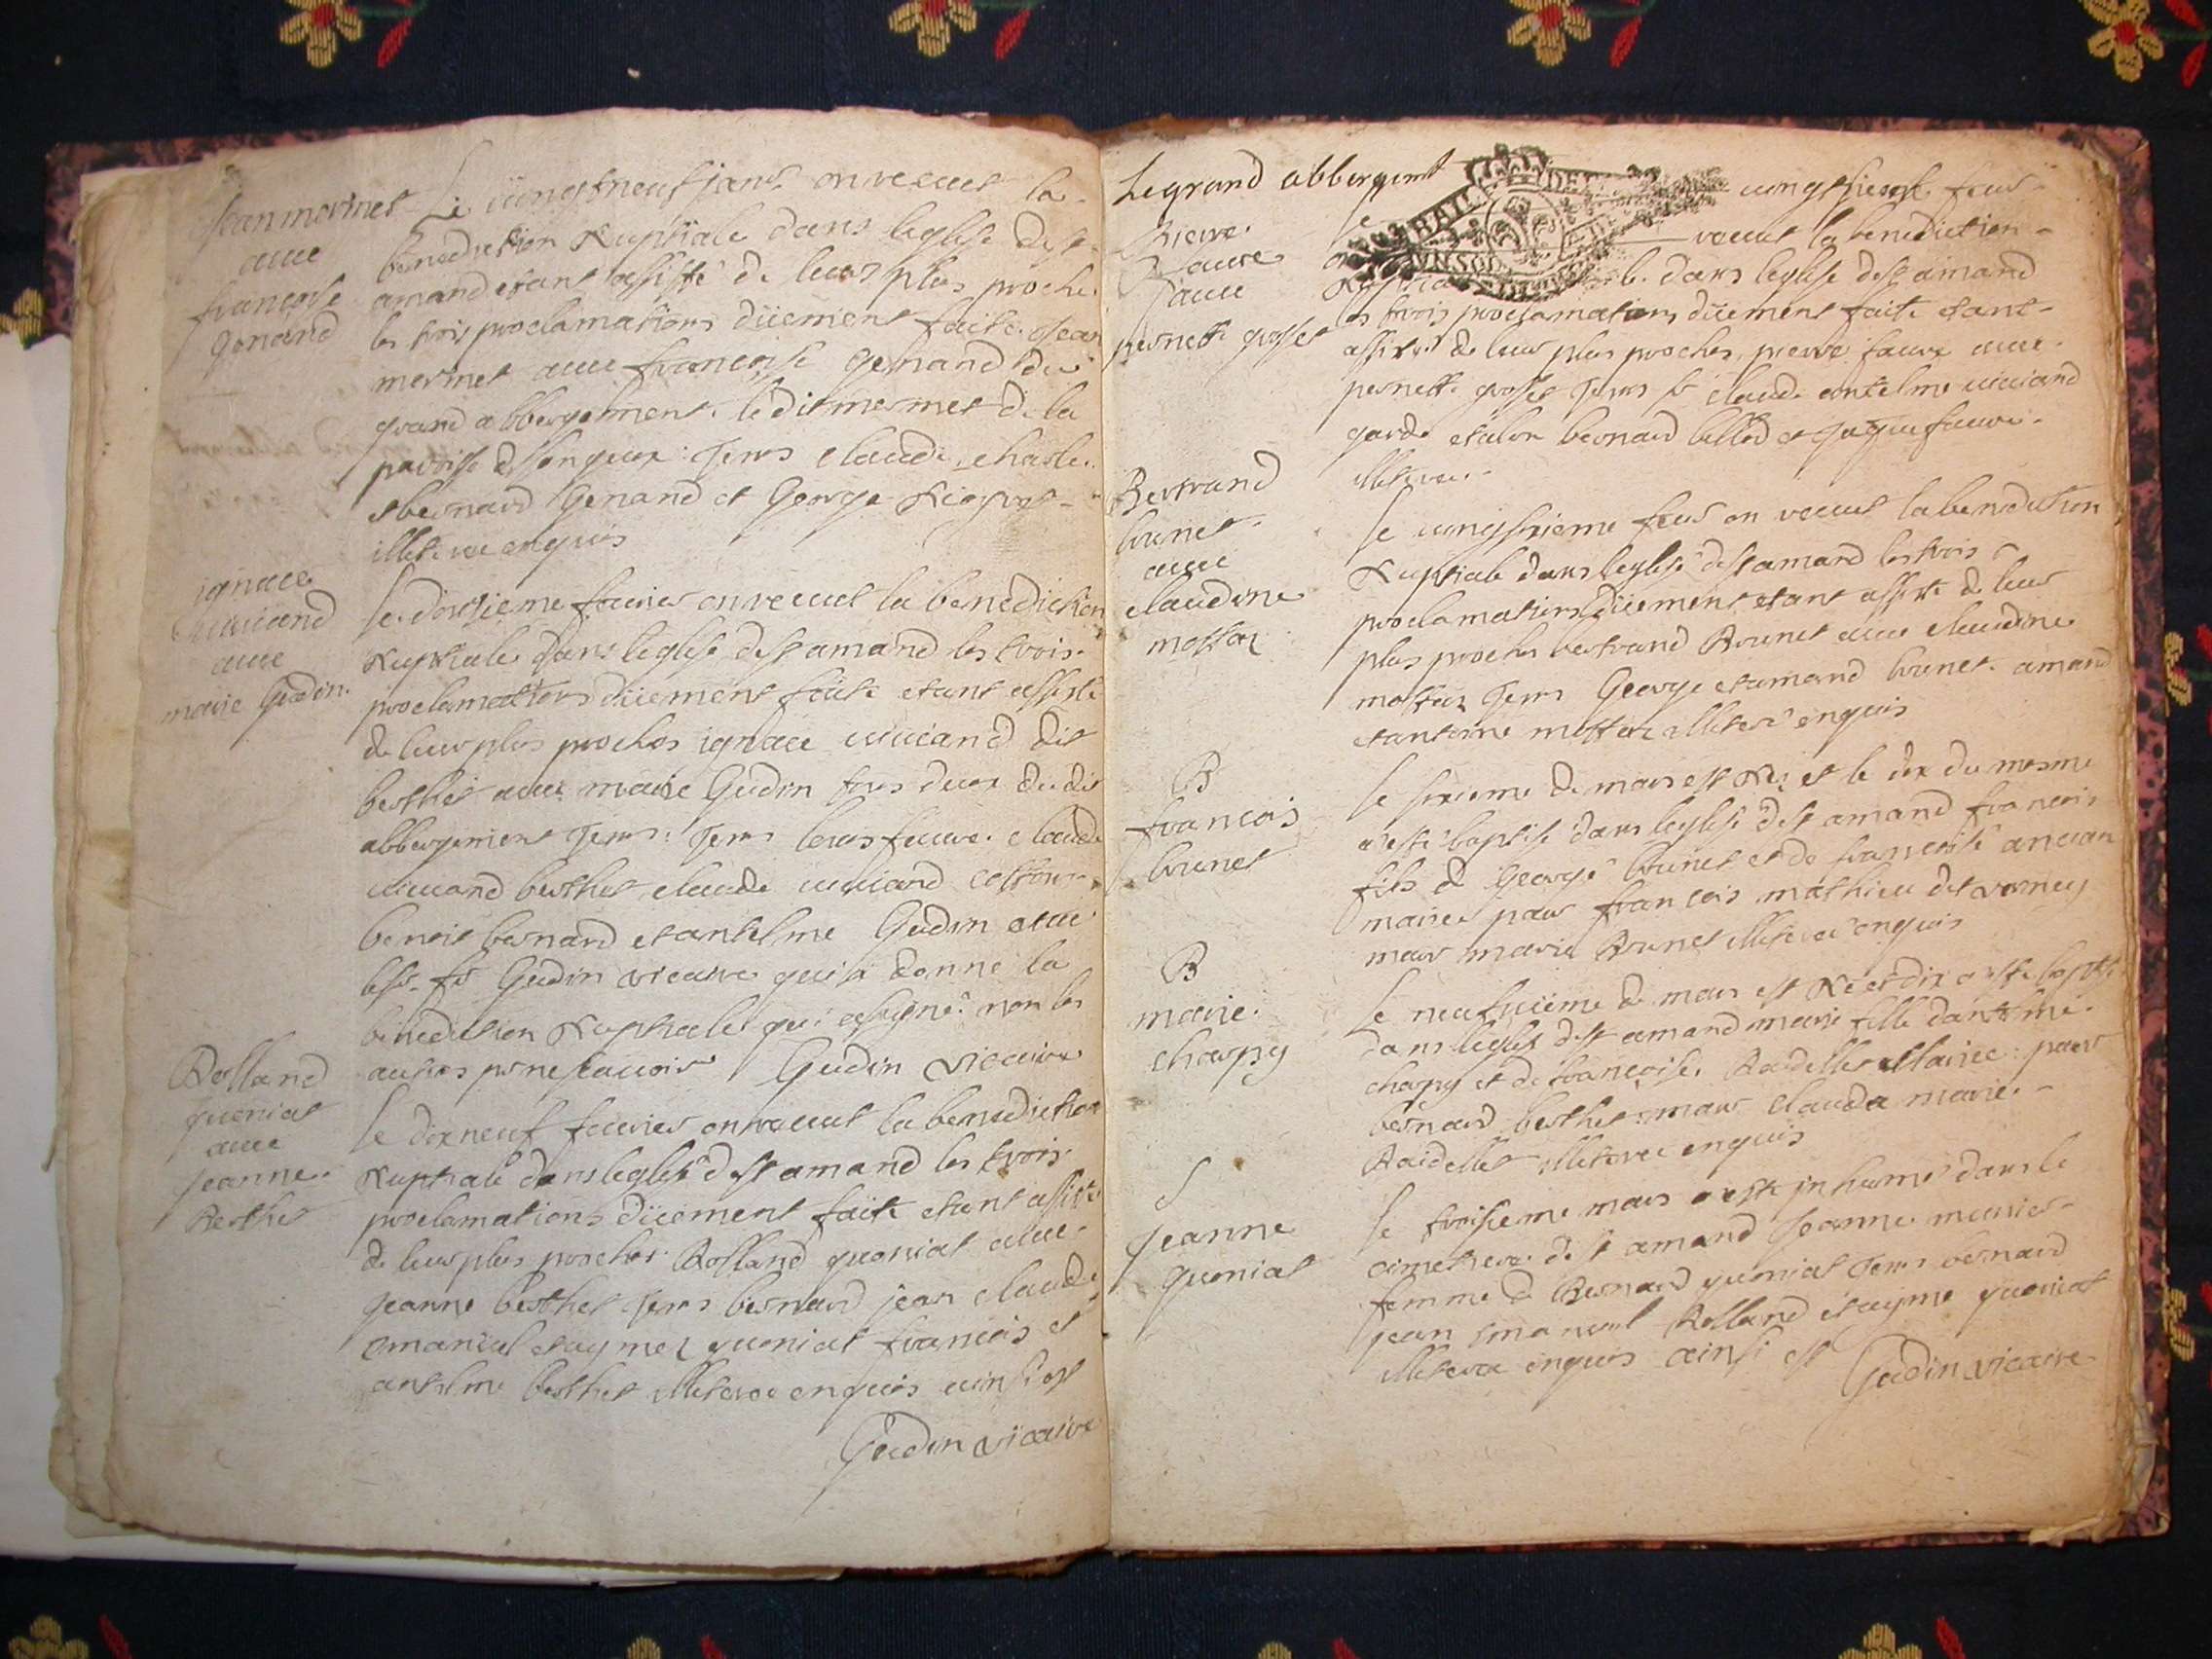 Jean mermet
avec
francoise
genand
Le vingtneuf janr on receut la
benediction Nuptiale dans leglise de st
amand etant assisté de leurs plus proches
les trois proclamations düement faite Jean
mermet avec francoise genand du
grand abbergement ledit mermet de la
paroise de songieux Tems claude charle
et bernard Genand et George
illiteree enquis
ignace
vuiviand
avec
marie Gudin
le douzieme fevrier on receut la benediction
Nuptiale dans leglise de st amand les trois
proclamations düement faite etant assisté
de leurs plus proches ignace viviand dit
berthet avec marie Gudin tous deux du dit
abbergement Tems Tems louis feuvre claude
viviand berthet claude viviand
benoit bernard et antelme Gudin et
Gudin vicaire qui a donné la
benediction Nuptiale qui a signé non les
autres pr ne scavoir Gudin vicaire
Rolland
quoniat
avec
jeanne
Berthet
le dixneuf fevrier on receut la benediction
Nuptiale dans leglise de st amand les trois
proclamations düement faite etant assisté
de leurs plus proches Rolland quoniat avec
jeanne berthet Tems bernard jean claude
emanuel et aymez quoniat francois et
antelme berthet illiteree enquis ainsi est
Gudin vicaire
Le grand abbergemt
pierre
faure
avec
pernette grosset
le vingtsieme feur
on receut la benediction
Nuptiale dans leglise de st amand
les trois proclamations düement faite etant
assisté de leurs plus proches pierre faure avec
pernette grosset Tems sr claude antelme viviand
garde bernard billod et jaque faure
illiteree
Bertrand
brunet
avec
claudine
mottaz
le vingtsixieme feur on receut la benediction
Nuptiale dans leglise de st amand les trois
proclamations düement etant assisté de leurs
plus proches bertrand Brunet avec claudine
mottaz Tems George et amand brunet amand
et antoine mottaz illiteré enquis
B
francois
brunet
le sixieme de mars est Né et le dix du mesme
a esté baptisé dans leglise de st amand francois
fils de George brunet et de francoise ancian
mariés parr francois mathieu dit
marr marie Brunet illiteree enquis
B
marie
charpy
le neufvieme de mars est Née et dix a esté baptisé
dans leglise de st amand marie fille dantelme
charpy et de francoise Raidellet mariee parr
bernard berthet marr claudia marie
Raidellet illiteree enquis
S
Jeanne
quoniat
le troisieme mars a esté inhumé dans le
cimetiere de st amand Jeanne munier
femme de Bernard quoniat Tems bernard
jean emanuel Rolland et ayme quoniat
illiteree enquis ainsi est
Gudin vicaire